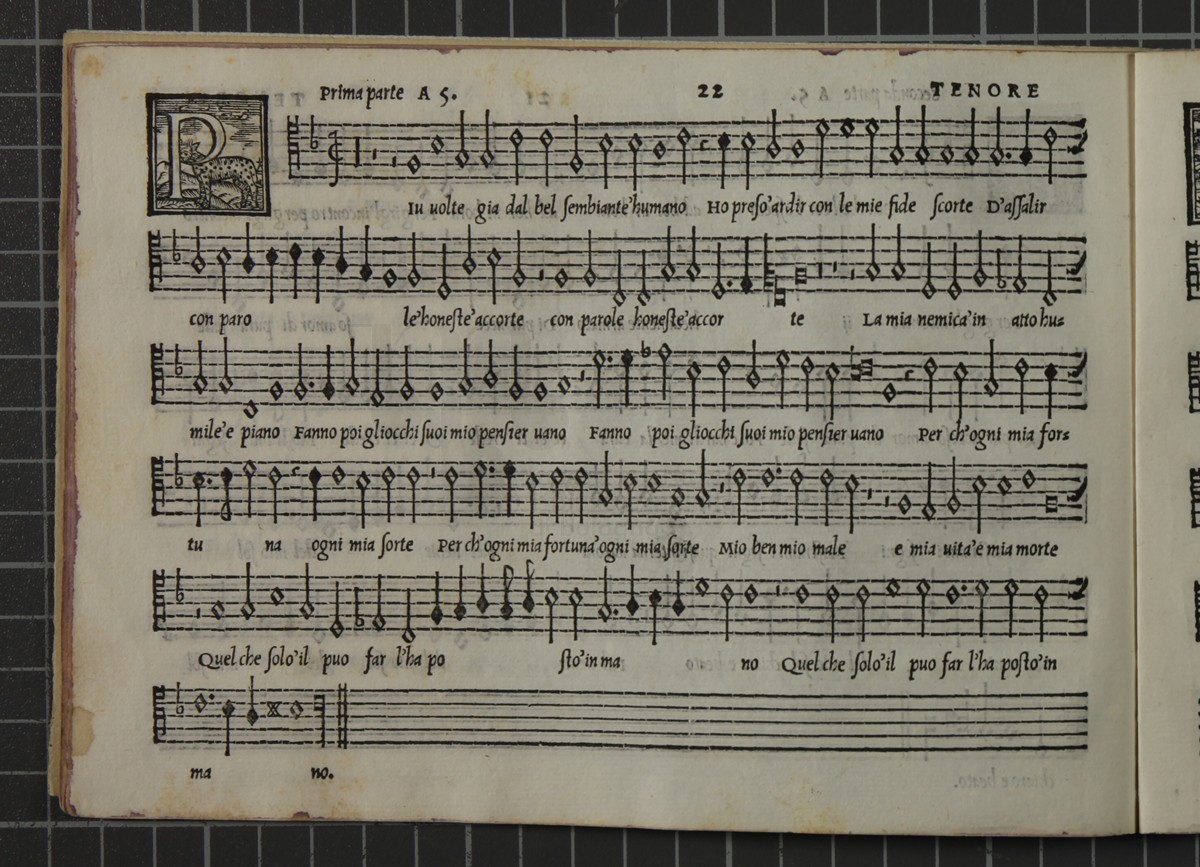 Prima parte A 5. 22 TENORE
P Iu uolte gia dal bel sembiante'humano Ho preso'ardir con le mie fide scorte D'assalir
con paro le'honeste'accorte con parole honeste'accor te La mia nemica'in atto hu=
mile'e piano Fanno poi gliocchi suoi mio pensier uano Fanno poi gliocchi suoi mio pensier uano Per ch'ogni mia for=
tu na ogni mia sorte Per ch'ogni mia fortuna'ogni mia sorte Mio ben mio male e mia uita'e mia morte
Quel che solo'il puo far l'ha po sto'in ma no Quel che solo'il puo far l'ha posto'in
ma no.